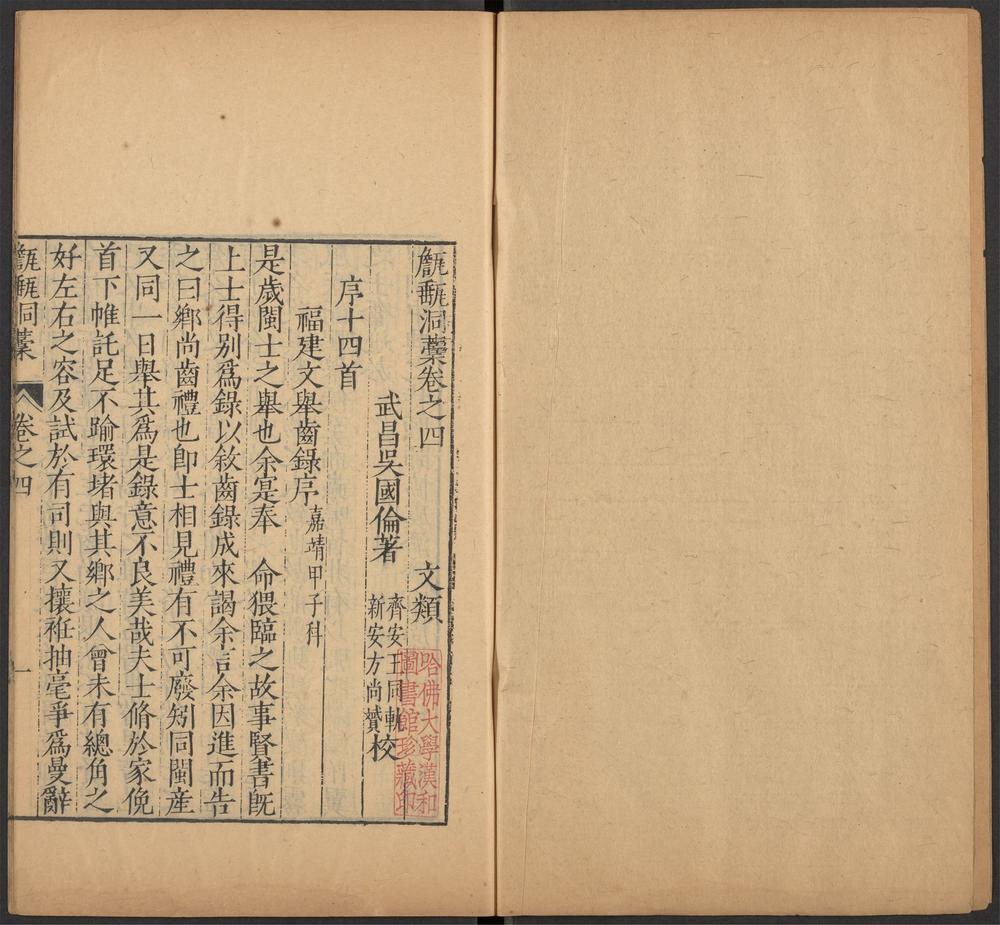 甔甀洞藁卷之四 文類
武昌吳國倫著
齊安王同軌
新安方尚贇校
序十四首
福建文舉齒錄序嘉靖甲子科
是歲閩士之舉也余寔奉 命猥臨之故事賢書旣
上士得别爲錄以敘齒錄成來謁余言余因進而告
之曰鄉尚齒禮也卽士相見禮有不可廢矧同閩産
又同一日舉其爲是錄意不良美哉夫士脩於家俛
首下帷託足不踰環堵與其鄉之人曾未有總角之
好左右之容及試於有司則又攘袵抽毫爭爲曼辭
甔甀洞藁 卷之四 一
哈佛大學漢和
圖書館珍藏印